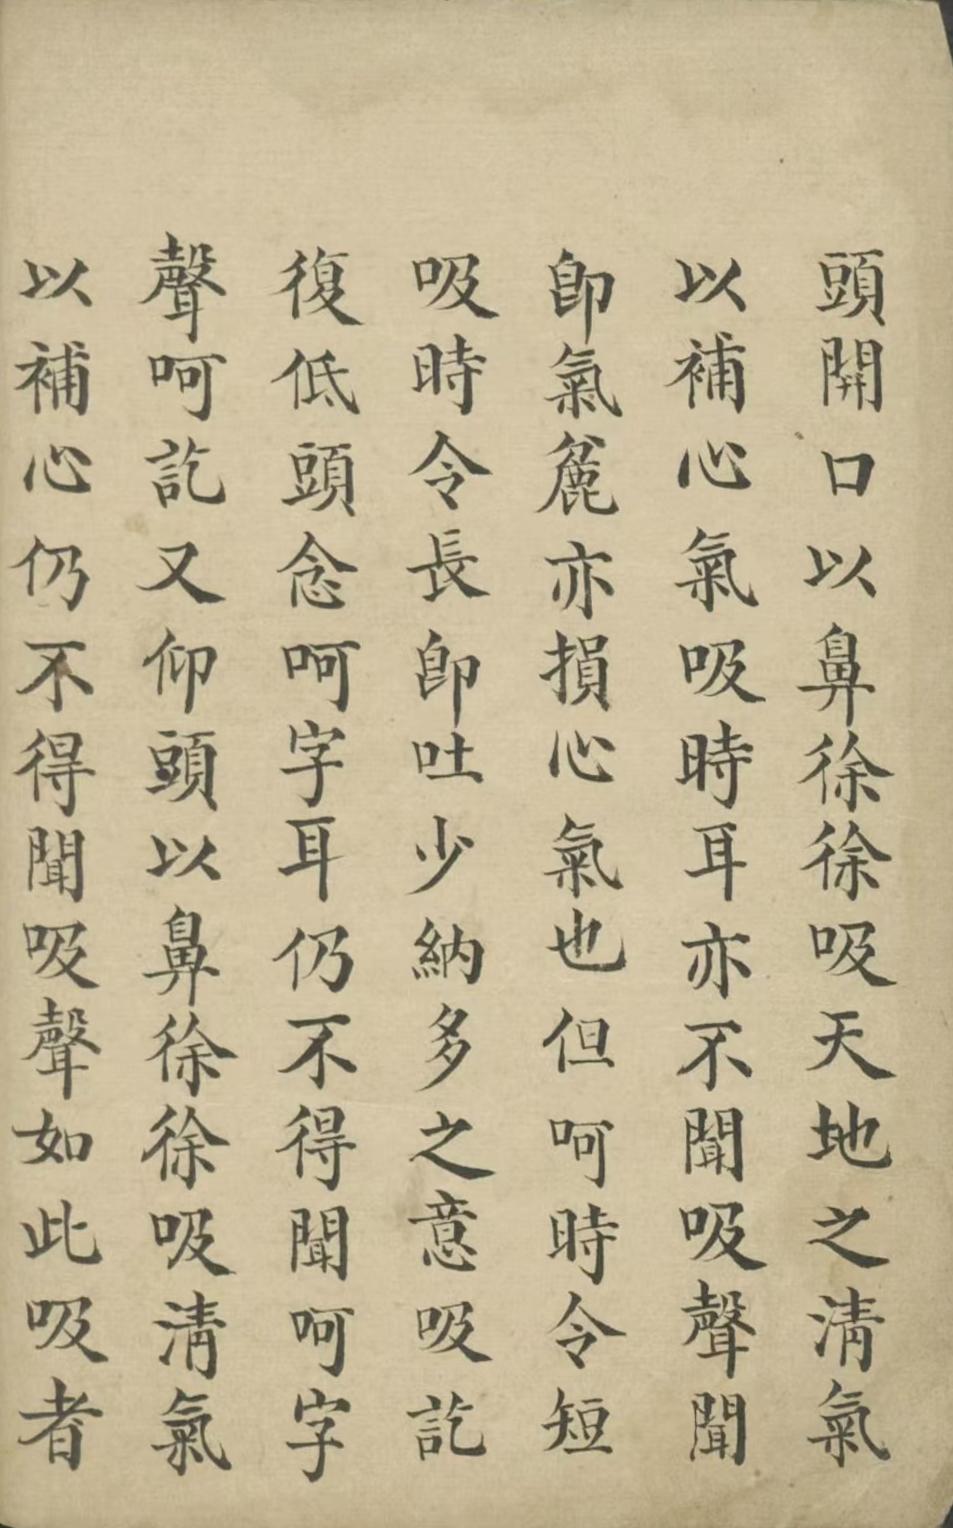 頭開口以鼻徐徐吸天地之清氣
以補心氣吸時耳亦不聞吸聲聞
卽氣麄亦損心氣也但呵時令短
吸時令長卽吐少納多之意吸訖
復低頭念呵字耳仍不得聞呵字
聲呵訖又仰頭以鼻徐徐吸清氣
以補心仍不得聞吸聲如此吸者